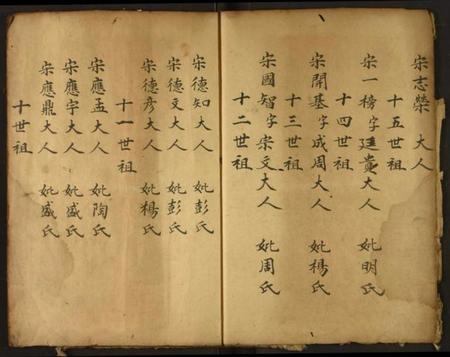 宋志榮 大人
十五世祖
宋一榜字廷貴大人 妣明氏
十四世祖
宋開基字成周大人 妣楊氏
十三世祖
宋國智字宗文大人 妣周氏
十二世祖
宋德知大人 妣彭氏
宋德文大人 妣彭氏
宋德彥大人 妣楊氏
十一世祖
宋應孟大人 妣陶氏
宋應宇大人 妣盛氏
宋應鼎大人 妣盛氏
十世祖